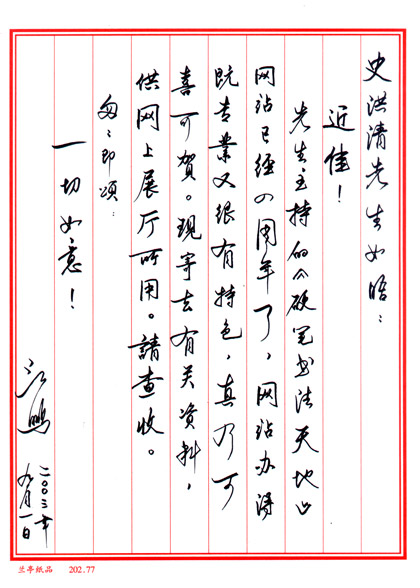 史洪清先生如晤：
近佳！
先生主持的《硬笔书法天地》
网站已经四周年了，网站办得
既专业又很有特色，真乃可
喜可贺。现寄去有关资料，
供网上展厅所用。請查收。
匆匆即颂：
一切如意！
江鹏
二00三年
九月一日
兰亭纸品 202.77